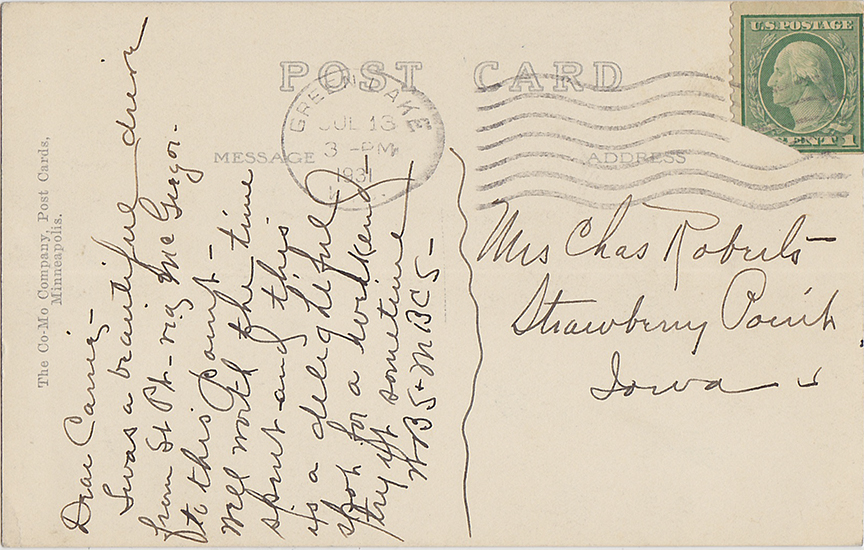 POST CARD
GREEN LAKE
JUL 13
3 - PM
1931
MESSAGE
ADDRESS
U.S. POSTAGE
CENT 1
The Co-Mo Company, Post Cards,
Minneapolis.
Dear Carrie,-
Twas a beautiful drive
from St Pt- via McGregor-
to this Point-
Well worth the time
spent- and this
is a delightful
spot for a weekend-
try it sometime-
WBS + MBCS-
Mrs Chas Roberts
Strawberry Point
Iowa